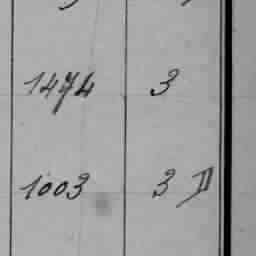 1474 3
1003 3 D